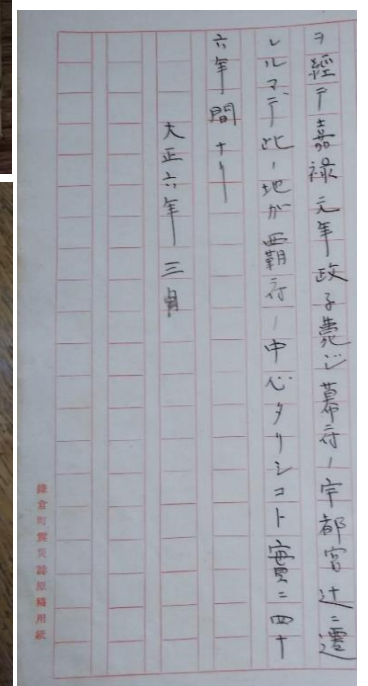 ヲ經テ嘉禄元年政子薨ジ幕府ノ宇都宮辻ニ遷
レルマデ此ノ地ガ覇府ノ中心タリシコト實ニ四十
六年間ナリ
大正六年三月
鎌倉町震災誌原稿用紙